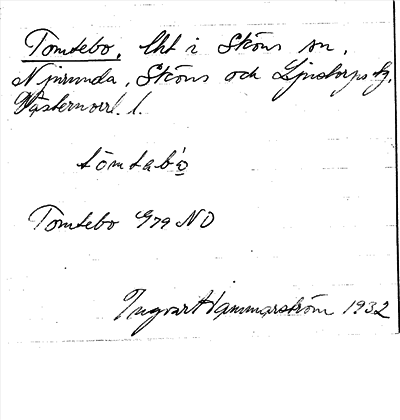 Tomtebo, lht i Sköns sn,
Njurunda, Sköns och Ljustorps tg,
Västernorrl. l.
tómtabò
Tomtebo G79 NO
Ingvar Hammarström 1932